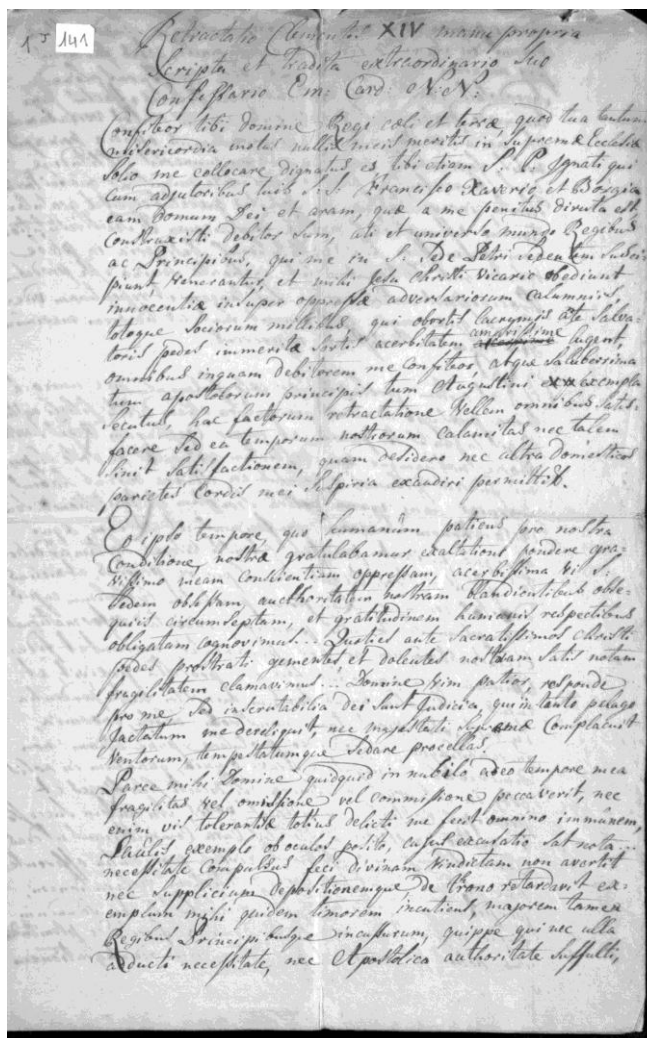 1 J 141
Retractatio Clementis XIV manu propria
Scripta et tradita extraordinario Suo
Confessario Em: Card: N: N:
Confiteor tibi Domine Regi cœli et terræ, quod tua tantum
misericordia motus nullis meis meritis in Supremæ Ecclesiæ
Solio me collocare dignatus es tibi etiam S. P. Ignati qui
cum adjutoribus tuis S: S: Francisco Xaverio et Borgia
eam Domum Dei et aram, quæ a me penitus diruta est
construxisti debitor sum, uti et universo mundo Regibus
ac Principibus, qui me in S: Sede Petri Sedentem susci-
piunt venerantur, et mihi Jesu Christi Vicario obediunt
innocentiæ insuper oppressæ adversariorum calumniis
totque Sociorum millibus, qui obortis lacrymis ante Salva-
toris pedes immeritæ sortis acerbitatem amarissime lugent,
omnibus inquam debitorem me confiteor, atque saluberrima
tum apostolorum principis tum Augustini exempla
Secutus, hac factorum retractatione vellem omnibus satis-
facere Sed ea temporum nostrorum calamitas nec talem
Sinit Satisfactionem, quam desidero nec ultra domesticos
parietes Cordis mei Suspiria exaudiri permittit.
Eo ipso tempore, quo humanum patiens pro nostra
Conditione, nostræ gratulabamur exaltationi pondere gra-
vissimo meam conscientiam oppressam, acerbissima vi S:
Sedem obsessam aucthoritatem nostram blandientibus obse-
quiis circumseptam, et gratitudinem humanis respectibus
obligatam cognovimus... Quoties ante Sacratissimos Christi
pedes prostrati gementes et dolentes nostram Satis notam
fragilitatem clamavimus... Domine vim patior, responde
pro me Sed inscrutabilia dei Sunt Judicia, qui in tanto pelago
Jactatum me dereliquit, nec majestati Supremæ Complacuit
Ventorum, tempestatumque Sedare procellas.
Parce mihi Domine quidquid in nubilo adeo tempore mea
fragilitas vel omissione vel commissione peccaverit, nec
enim vis tolerantiæ totius delicti me fecit omnino immunem,
Saulis exemplo ob oculos posito, cujus excusatio sat nota...
necessitate Compulsus feci divinam vindictam non avertit
nec Supplicium depositionemque de throno retardavit ex-
emplum mihi quidem timorem incutiens, majorem tamen
Regibus Principibusque incussurum, quippe qui nec ulla
adducti necessitate, nec Apostolica authoritate Suffulti,